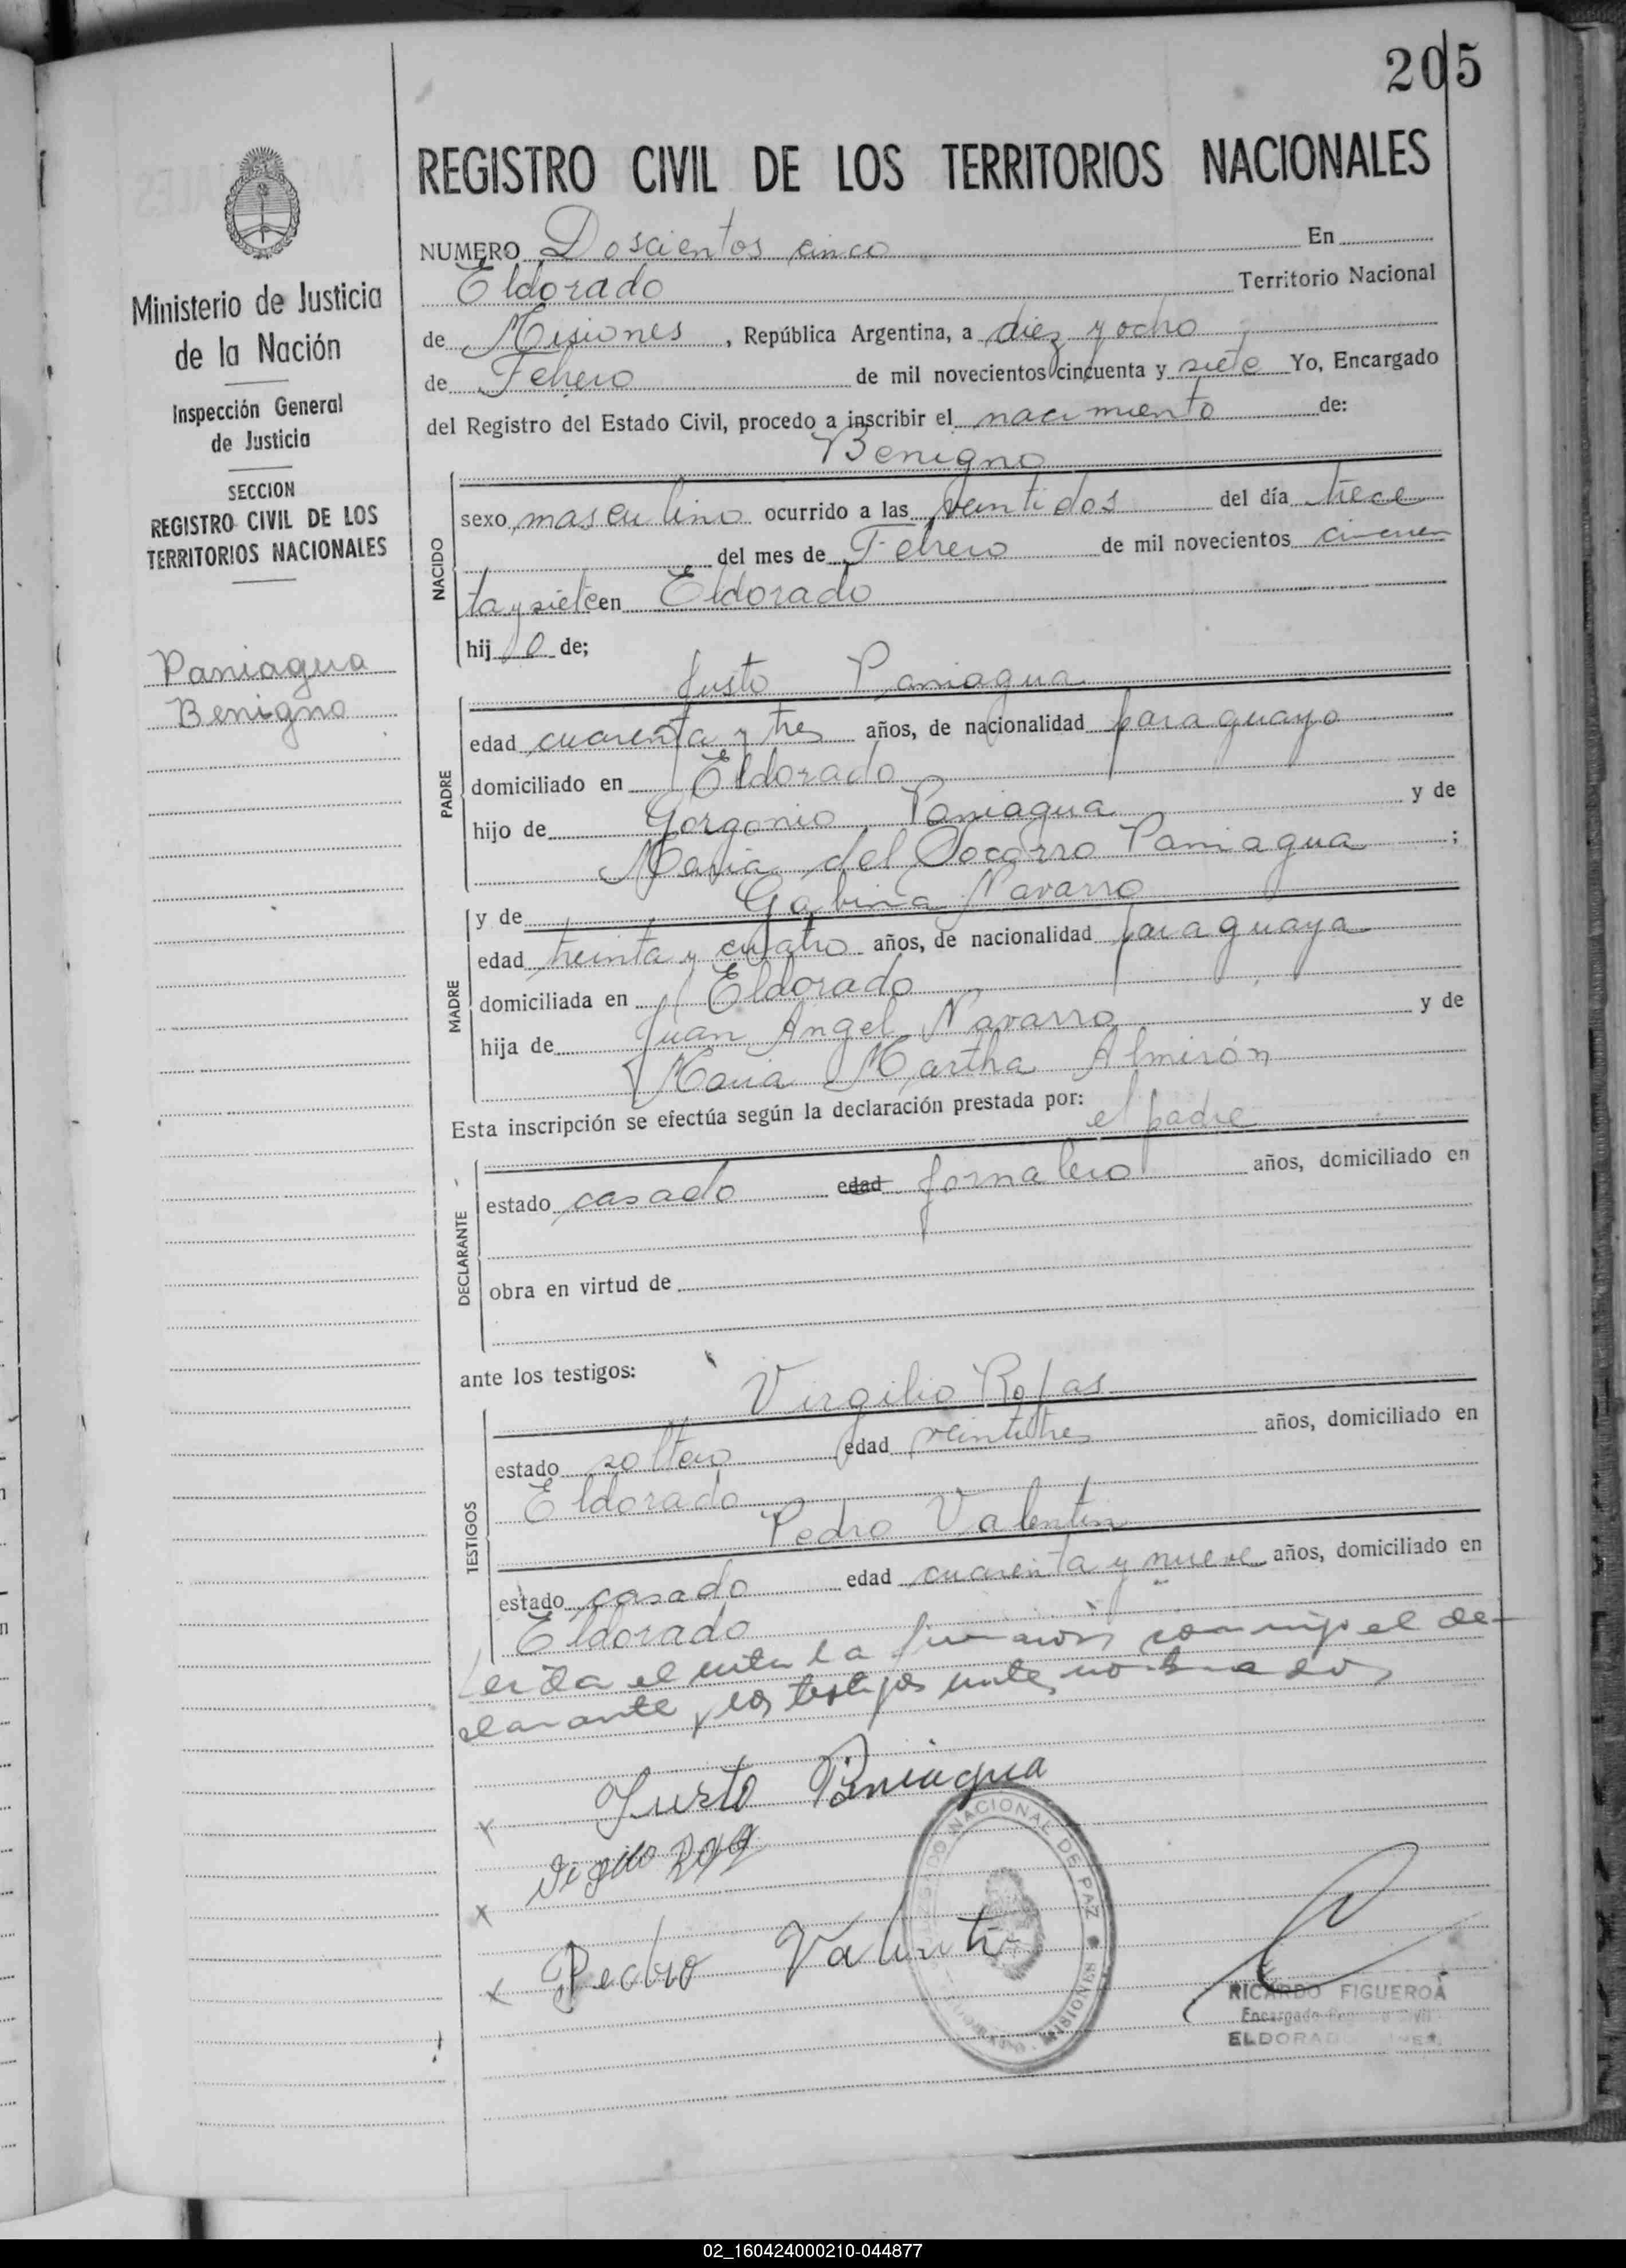 205
REGISTRO CIVIL DE LOS TERRITORIOS NACIONALES
Ministerio de Justicia
de la Nación
Inspección General
de Justicia
SECCION
REGISTRO CIVIL DE LOS
TERRITORIOS NACIONALES
Paniagua
Benigno
NUMERO Doscientos cinco En
Eldorado Territorio Nacional
de Misiones, República Argentina, a diez y ocho
de Febrero de mil novecientos cincuenta y siete Yo, Encargado
del Registro del Estado Civil, procedo a inscribir el nacimiento de:
Benigno
NACIDO
sexo masculino ocurrido a las veintidos del día trece
del mes de Febrero de mil novecientos cincuen
ta y siete en Eldorado
hij o de;
Justo Paniagua
PADRE
edad cuarenta y tres años, de nacionalidad paraguayo
domiciliado en Eldorado
hijo de Gorgonio Paniagua y de
Maria del Socorro Paniagua ;
y de Gabina Navarro
MADRE
edad treinta y cuatro años, de nacionalidad paraguaya
domiciliada en Eldorado
hija de Juan Angel Navarro y de
Maria Martha Almirón
Esta inscripción se efectúa según la declaración prestada por:
el padre
DECLARANTE
estado casado edad jornalero años, domiciliado en
obra en virtud de
ante los testigos:
Virgilio Rojas
TESTIGOS
estado soltero edad veintitres años, domiciliado en
Eldorado
Pedro Valentin
estado casado edad cuarenta y nueve años, domiciliado en
Eldorado
Leida el acta la firmaron conmigo el de-
clarante y los testigos antes nombrados
Justo Paniagua
Pedro Valentin
JUZGADO NACIONAL DE PAZ
MISIONES
RICARDO FIGUEROA
Encargado Registro Civil
ELDORADO
02_160424000210-044877